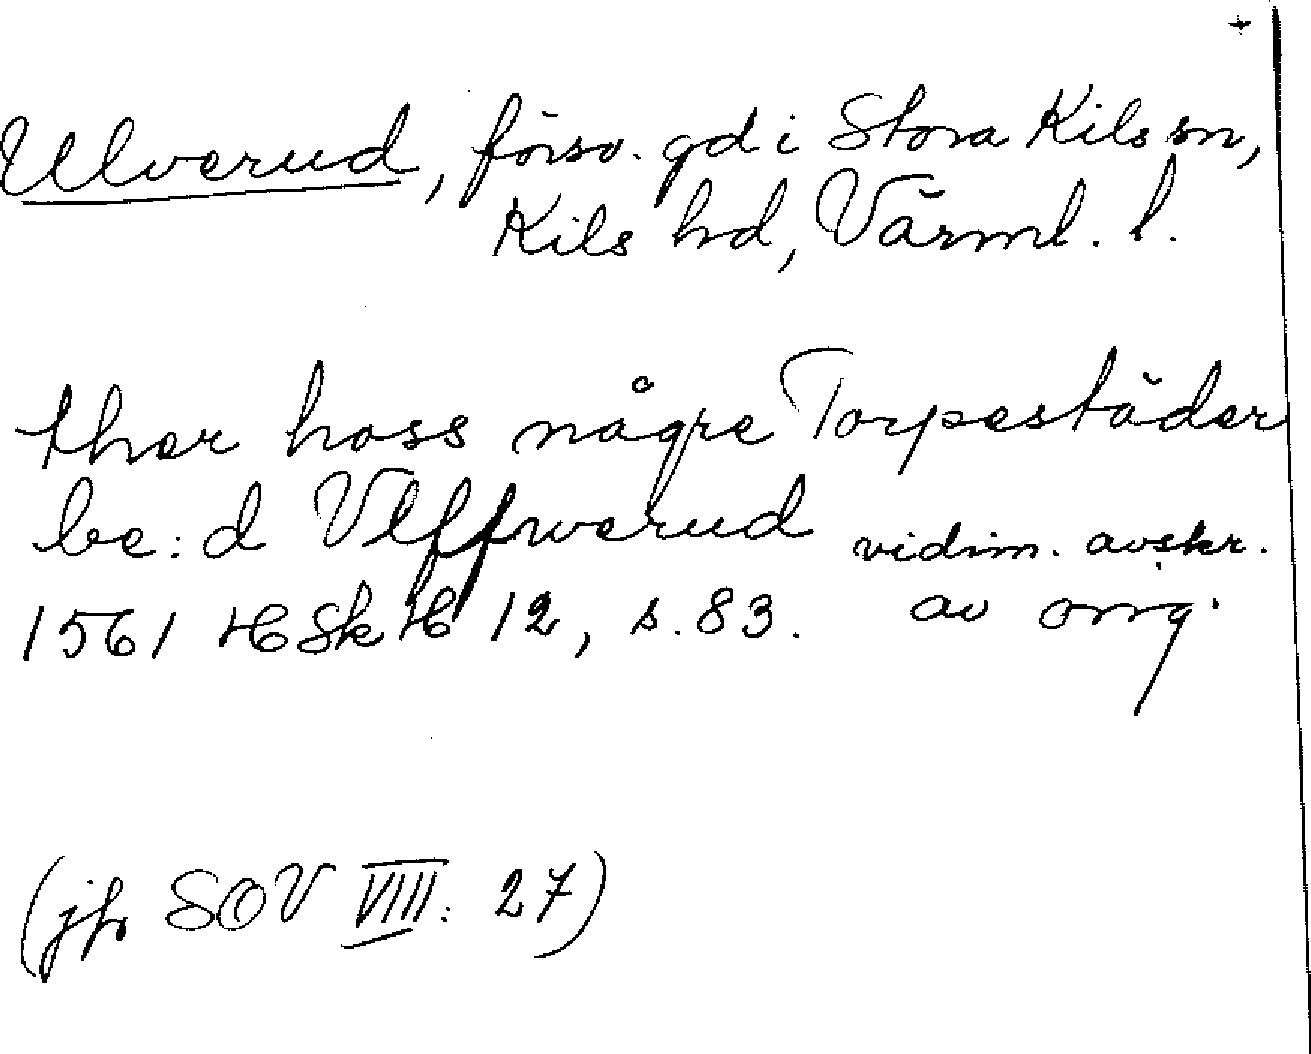 +
Ulverud, försv. gd i Stora Kils sn,
Kils hd, Värml. l.
ther hoss någre Torpestäder
be:d Vlffwerud vidim. avskr.
1561 HSkH 12, s. 83. av orig.
(jfr SOV VIII: 27)